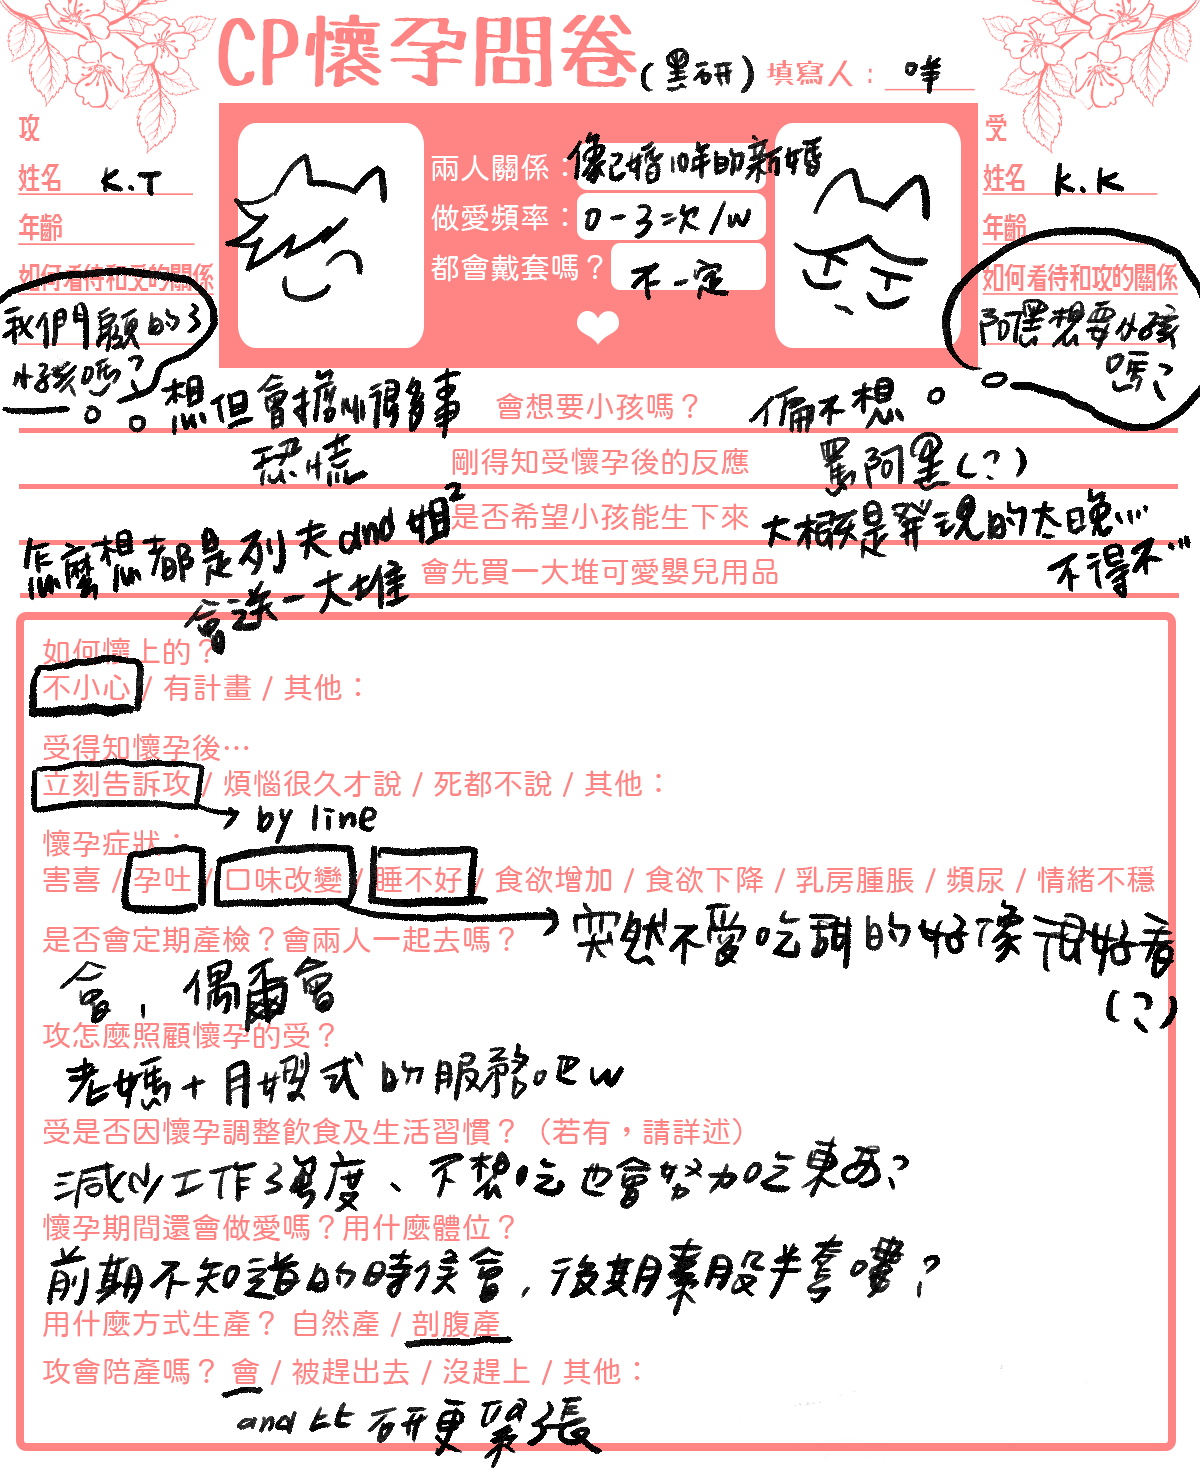 CP懷孕問卷(黑研) 填寫人： 咩
攻
姓名 K.T
年齡
如何看待和受的關係
我們顧的了
小孩嗎？
兩人關係：像已婚10年的新婚
做愛頻率：0-3次/w
都會戴套嗎？ 不一定
受
姓名 K.K
年齡
如何看待和攻的關係
阿黑想要小孩
嗎？
想但會擔心很多事 會想要小孩嗎？ 偏不想
恐慌 剛得知受懷孕後的反應 罵阿黑(?)
是否希望小孩能生下來 大概是發現的太晚...
不得不...
怎麼想都是列夫and姐2
會先買一大堆可愛嬰兒用品
會送一大堆
如何懷上的？
不小心 / 有計畫 / 其他：
受得知懷孕後…
立刻告訴攻 / 煩惱很久才說 / 死都不說 / 其他：
by line
懷孕症狀：
害喜 / 孕吐 / 口味改變 / 睡不好 / 食欲增加 / 食欲下降 / 乳房腫脹 / 頻尿 / 情緒不穩
突然不愛吃甜的好像很好看
(?)
是否會定期產檢？會兩人一起去嗎？
會，偶爾會
攻怎麼照顧懷孕的受？
老媽+月嫂式的服務吧w
受是否因懷孕調整飲食及生活習慣？（若有，請詳述）
減少工作強度、不想吃也會努力吃東西？
懷孕期間還會做愛嗎？用什麼體位？
前期不知道的時候會，後期素股半套嘍？
用什麼方式生產？ 自然產 / 剖腹產
攻會陪產嗎？ 會 / 被趕出去 / 沒趕上 / 其他：
and比研更緊張